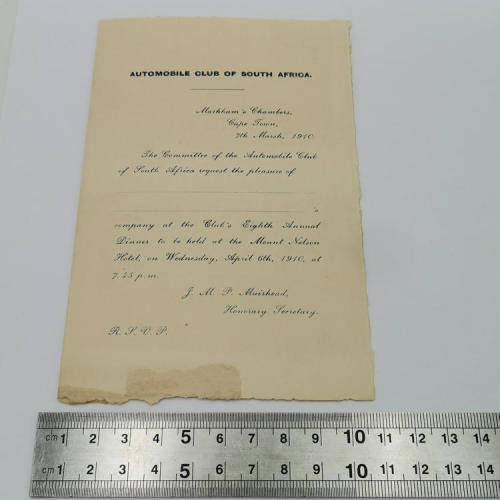 AUTOMOBILE CLUB OF SOUTH AFRICA.
Markham's Chambers,
Cape Town,
7th March, 1910.
The Committee of the Automobile Club
of South Africa request the pleasure of
's
company at the Club's Eighth Annual
Dinner to be held at the Mount Nelson
Hotel, on Wednesday, April 6th, 1910, at
7.45 p.m.
J. M. P. Muirhead,
Honorary Secretary.
R. S. V. P.
cm 1 2 3 4 5 6 7 8 9 10 11 12 13 14
cm 1 2 3 4 5 6 7 8 9 10 11 12 13 14